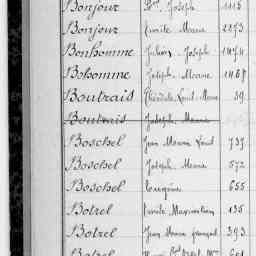 Bonjour Joseph 1115
Bonjour Emile Marie 2273
Bonhomme Julien Joseph 1474
Bohomme Joseph Marie 1468
Boutrais Théodule Louis Marie 39
Boutrais Joseph Marie
Boschel Jean Marie Louis 737
Boschel Joseph Marie 572
Boschel Eugène 655
Botrel Emile Maximilien 135
Botrel Jean Marie François 393
Botrel